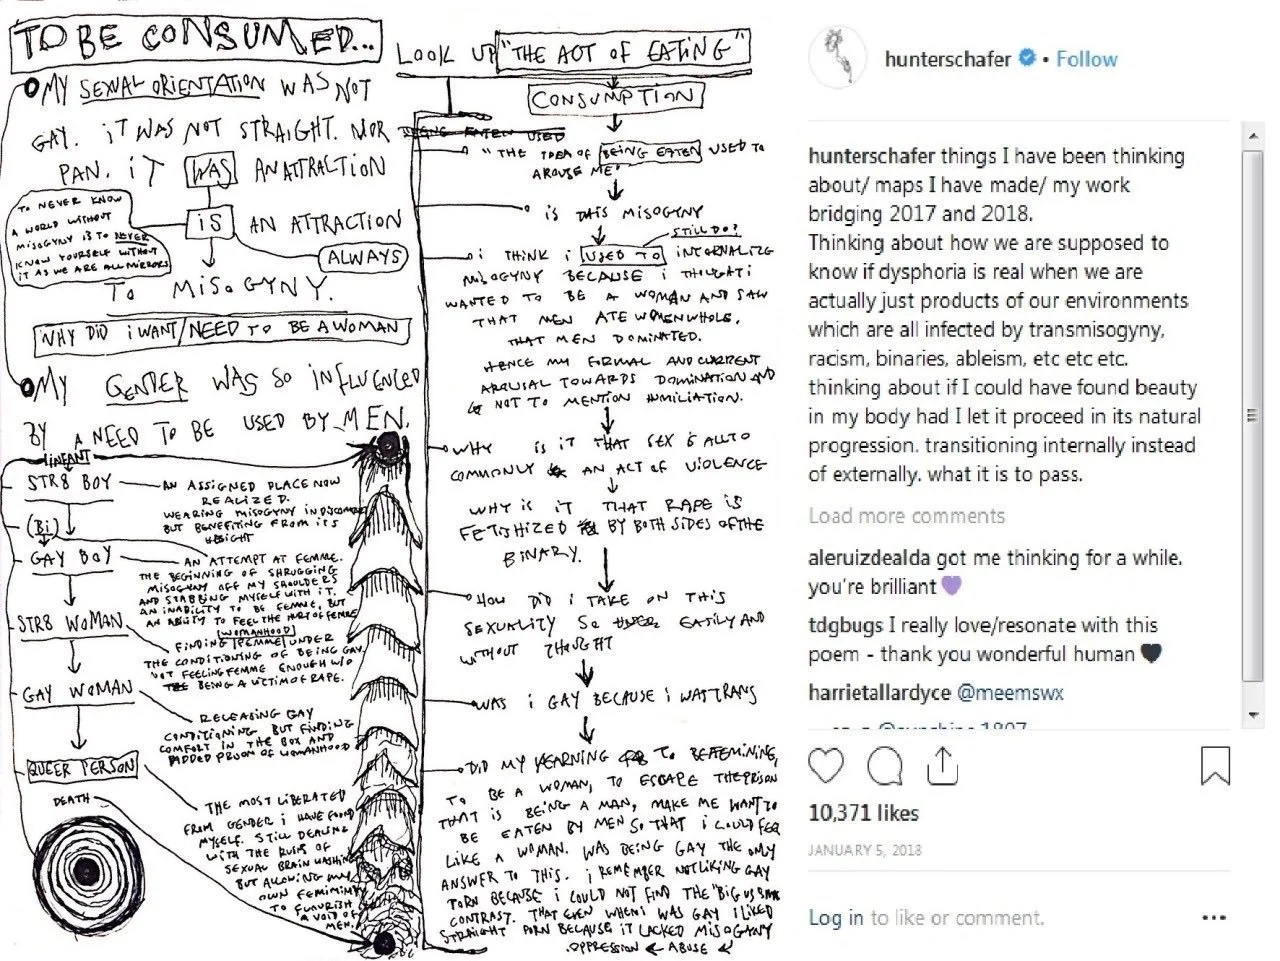 TO BE CONSUMED...
MY SEXUAL ORIENTATION WAS NOT
GAY. iT WAS NOT STRAIGHT. NOR
PAN. iT WAS AN ATTRACTION
IS AN ATTRACTION
ALWAYS
TO MISOGYNY.
TO NEVER KNOW
A WORLD WITHOUT
MISOGYNY IS TO NEVER
KNOW YOURSELF WITHOUT
IT AS WE ARE ALL MIRRORS
WHY DID i WANT/NEED TO BE A WOMAN
MY GENDER WAS SO INFLUENCED
BY A NEED TO BE USED BY MEN.
INFANT
STR8 BOY
AN ASSIGNED PLACE NOW
REALIZED.
WEARING MISOGYNY IN DISCOMFORT
BUT BENEFITING FROM ITS
WEIGHT
(Bi)
GAY BOY
AN ATTEMPT AT FEMME.
THE BEGINNING OF SHRUGGING
MISOGYNY OFF MY SHOULDERS
AND STABBING MYSELF WITH IT.
AN INABILITY TO BE FEMME, BUT
AN ABILITY TO FEEL THE HURT OF FEMME
STR8 WOMAN
WOMANHOOD
FINDING FEMME UNDER
THE CONDITIONING OF BEING GAY.
NOT FEELING FEMME ENOUGH W/O
BEING A VICTIM OF RAPE.
GAY WOMAN
RELEASING GAY
CONDITIONING BUT FINDING
COMFORT IN THE BOX AND
PADDED PROOM OF WOMANHOOD
QUEER PERSON
THE MOST LIBERATED
FROM GENDER i HAVE FOUND
MYSELF. STILL DEALING
WITH THE RUINS OF
SEXUAL BRAIN WASHING
BUT ALLOWING MY
OWN FEMININITY
TO FLOURISH
A VOID OF
MEN.
DEATH
LOOK UP "THE ACT OF EATING"
CONSUMPTION
BEING EATEN USED
"THE IDEA OF BEING EATEN USED TO
AROUSE ME"
IS THIS MISOGYNY
STILL DO?
i THINK i USED TO INTERNALIZE
MISOGYNY BECAUSE i THOUGHT i
WANTED TO BE A WOMAN AND SAW
THAT MEN ATE WOMEN WHOLE.
THAT MEN DOMINATED.
HENCE MY FORMAL AND CURRENT
AROUSAL TOWARDS DOMINATION AND
NOT TO MENTION HUMILIATION.
WHY IS iT THAT SEX IS ALL TO
COMMONLY AN ACT OF VIOLENCE
WHY IS IT THAT RAPE IS
FETISHIZED BY BOTH SIDES OF THE
BINARY.
HOW DID i TAKE ON THIS
SEXUALITY SO EASILY AND
WITHOUT THOUGHT
WAS i GAY BECAUSE i WAS TRANS
DID MY YEARNING TO BE FEMININE,
TO BE A WOMAN, TO ESCAPE THE PRISON
THAT IS BEING A MAN, MAKE ME WANT TO
BE EATEN BY MEN SO THAT i COULD FEEL
LIKE A WOMAN. WAS BEING GAY THE ONLY
ANSWER TO THIS. i REMEMBER NOT LIKING GAY
PORN BECAUSE i COULD NOT FIND THE "BIG VS SMALL
CONTRAST. THAT EVEN WHEN i WAS GAY i LIKED
STRAIGHT PORN BECAUSE IT LACKED MISOGYNY
OPPRESSION ← ABUSE
hunterschafer • Follow
hunterschafer things I have been thinking
about/ maps I have made/ my work
bridging 2017 and 2018.
Thinking about how we are supposed to
know if dysphoria is real when we are
actually just products of our environments
which are all infected by transmisogyny,
racism, binaries, ableism, etc etc etc.
thinking about if I could have found beauty
in my body had I let it proceed in its natural
progression. transitioning internally instead
of externally. what it is to pass.
Load more comments
aleruizdealda got me thinking for a while.
you're brilliant 💜
tdgbugs I really love/resonate with this
poem - thank you wonderful human 🖤
harrietallardyce @meemswx
10,371 likes
JANUARY 5, 2018
Log in to like or comment.